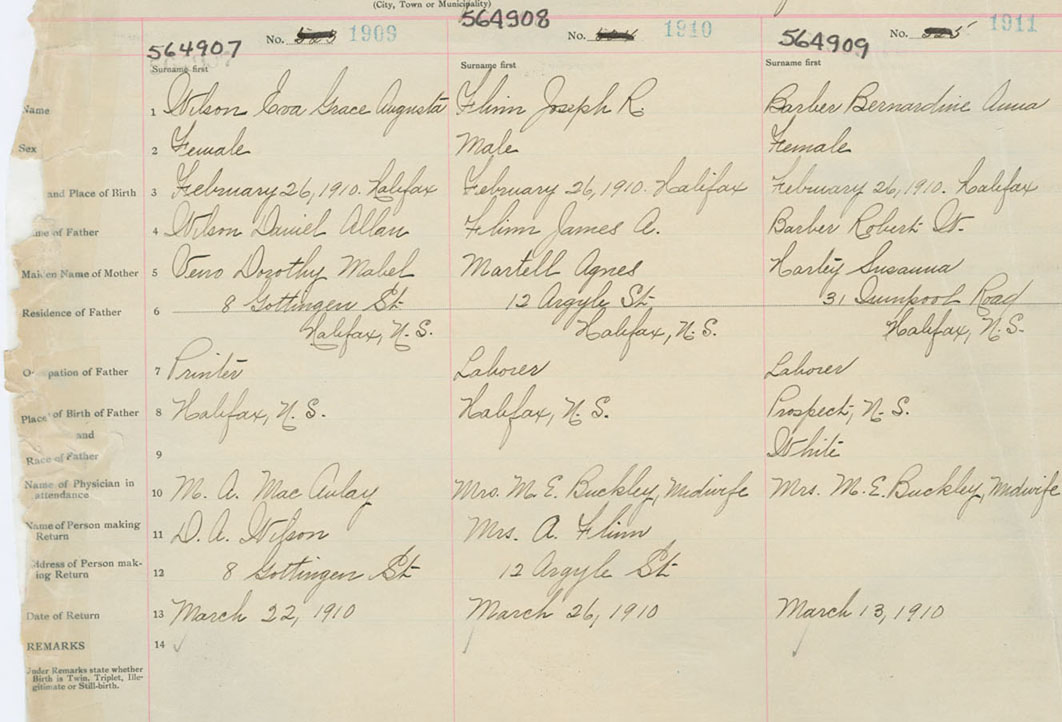 (City, Town or Municipality)
564907 No. 1909 564908 No. 1910 564909 No. 1911
Surname first Surname first Surname first
Name 1 Wilson Eva Grace Augusta Flinn Joseph R. Barber Bernardine Anna
Sex 2 Female Male Female
and Place of Birth 3 February 26, 1910. Halifax February 26, 1910. Halifax February 26, 1910. Halifax
me of Father 4 Wilson Daniel Allan Flinn James A. Barber Robert W.
Maiden Name of Mother 5 Veno Dorothy Mabel Martell Agnes Harley Susanna
Residence of Father 6 8 Gottingen St. 12 Argyle St. 31 Road
Halifax, N.S. Halifax, N.S. Halifax, N.S.
O pation of Father 7 Printer Laborer Laborer
Place of Birth of Father 8 Halifax, N.S. Halifax, N.S. Prospect, N.S.
and
Race of Father 9 White
Name of Physician in attendance 10 M. A. MacAulay Mrs. M. E. Buckley, Midwife Mrs. M. E. Buckley, Midwife
Name of Person making Return 11 D. A. Wilson Mrs. A. Flinn
ddress of Person mak-
ing Return 12 8 Gottingen St. 12 Argyle St.
Date of Return 13 March 22, 1910 March 26, 1910 March 13, 1910
REMARKS 14
Under Remarks state whether
Birth is Twin, Triplet, Ille-
gitimate or Still-birth.